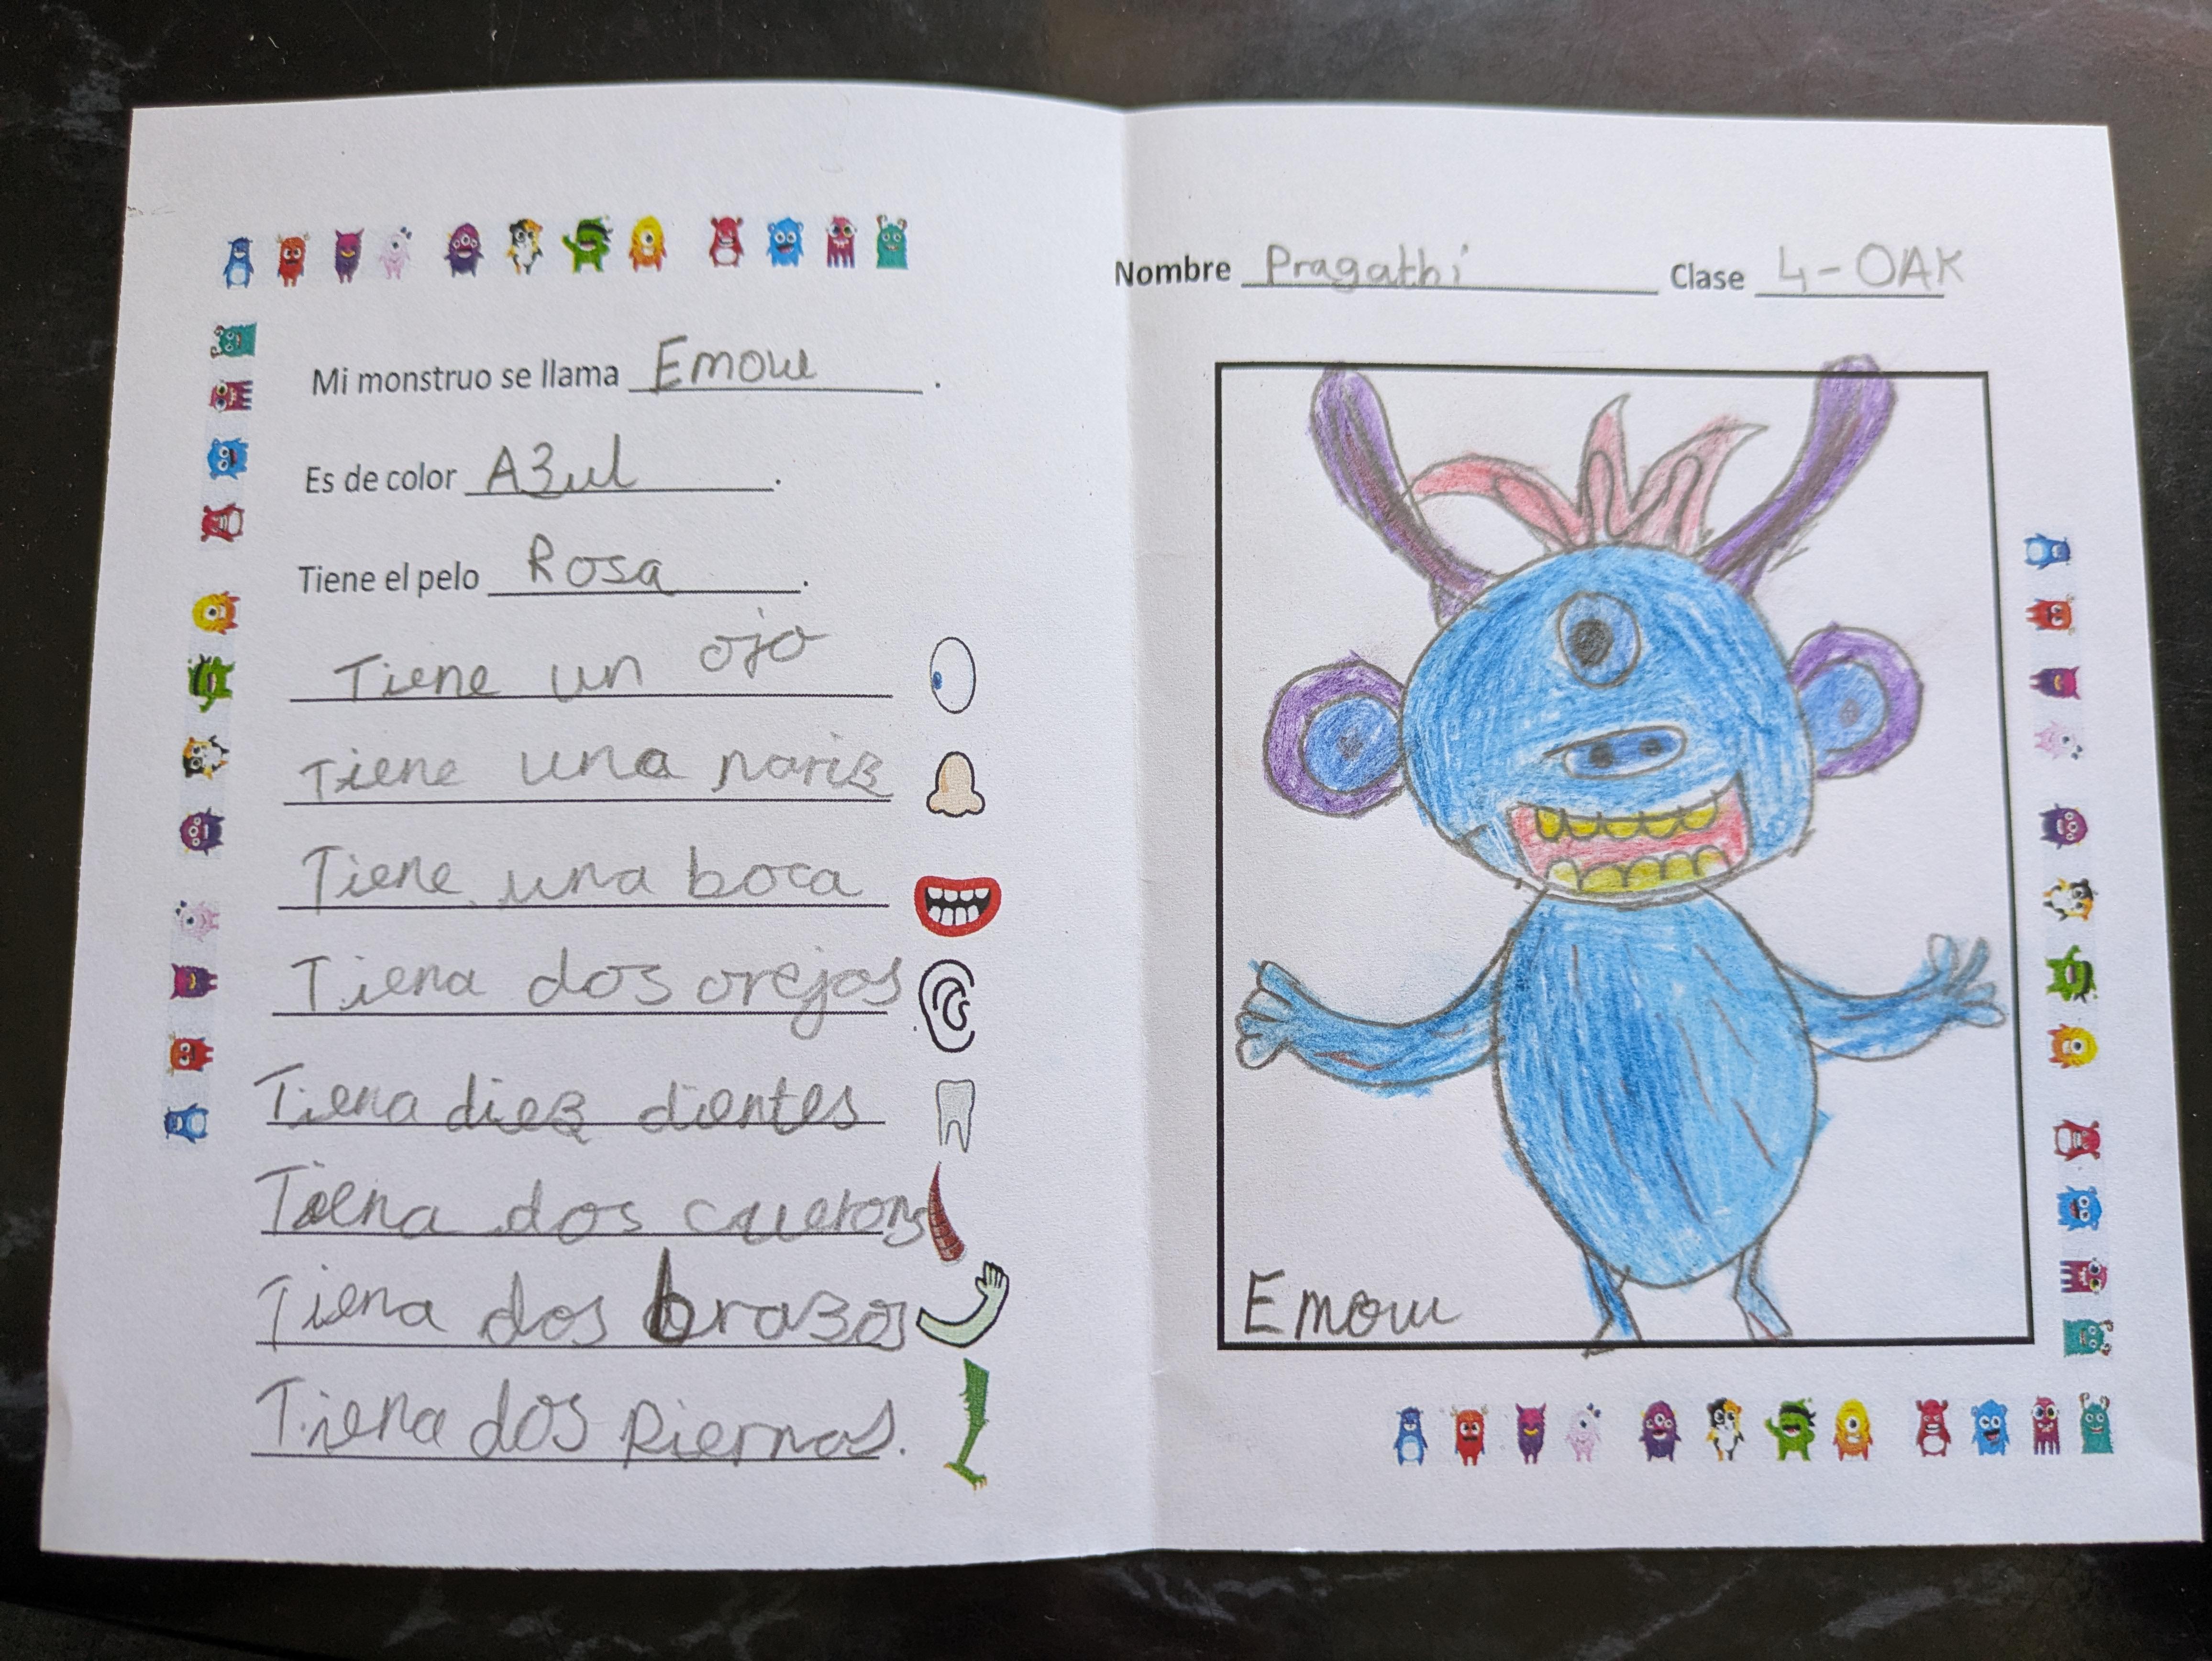 Mi monstruo se llama Emow.
Es de color Azul.
Tiene el pelo Rosa.
Tiene un ojo
Tiene una nariz
Tiene una boca
Tiena dos orejas
Tiena diez dientes
Tiena dos cuerons
Tiena dos brazos
Tiena dos piernas.
Nombre Pragathi Clase 4-OAK
Emow